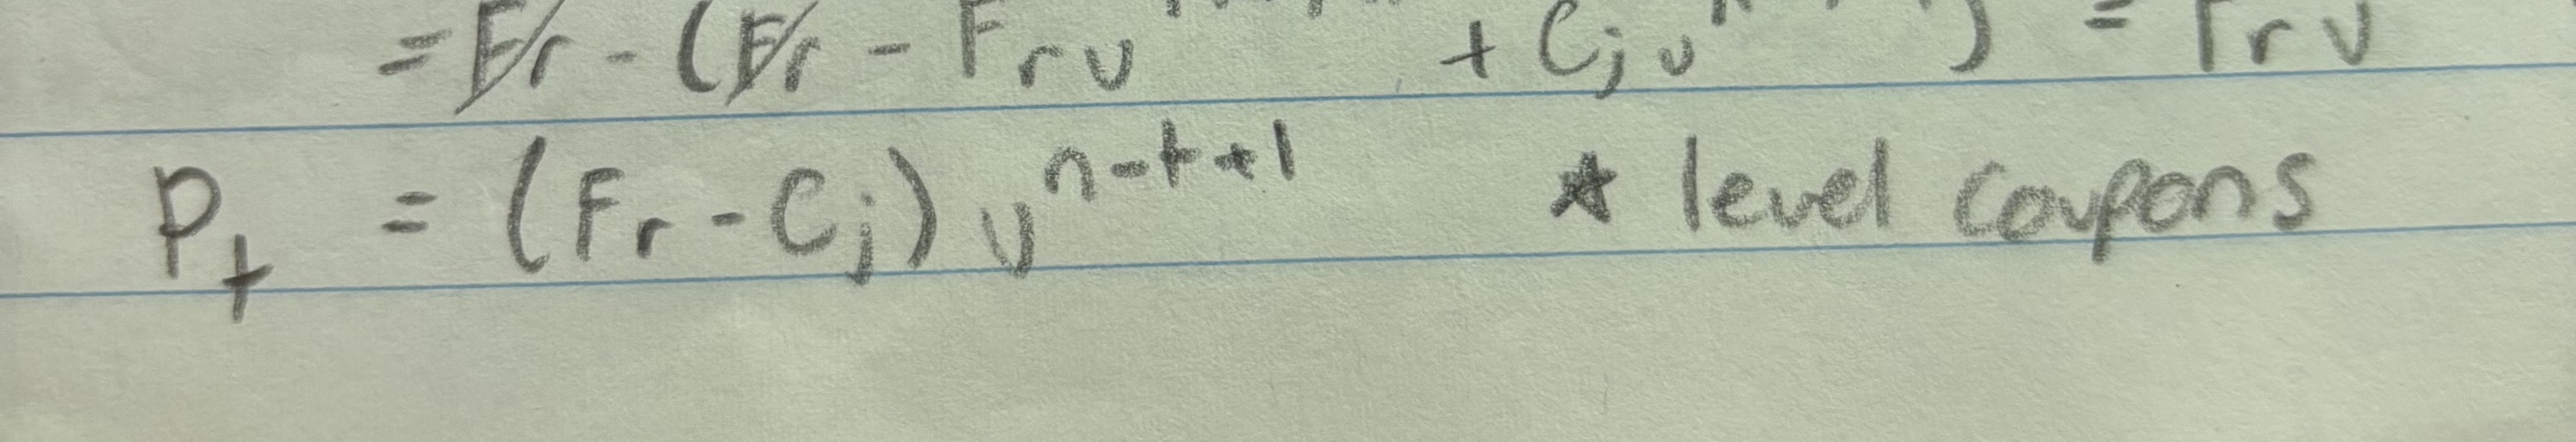 = Fr - (Fr - Frv + Cjv ) = Frv
Pt = (Fr - Cj) v^n-t+1 * level coupons